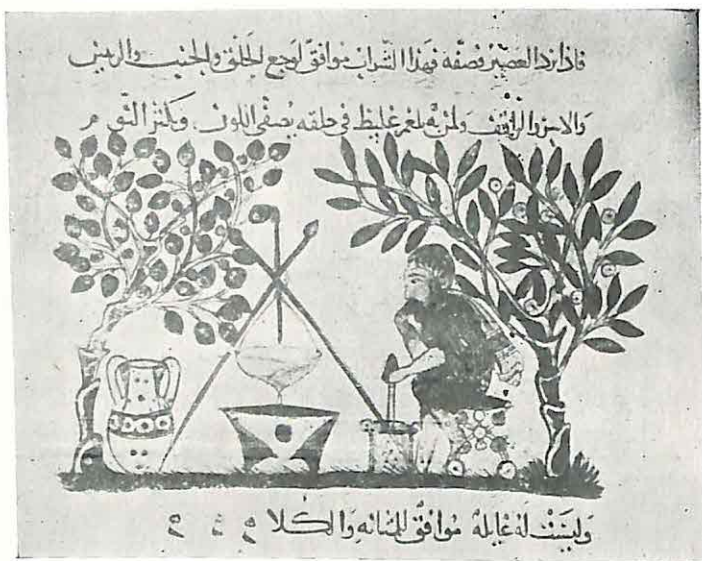 فاذا برد العصير فصفه فهذا الشراب موافق لوجع الحلق والجنب والريس
والاسر والراق ولمن به بلغم غليظ في حلقه يصفى اللون ويكثر النوم
وليست له غايلة موافق للمثانه والكلا